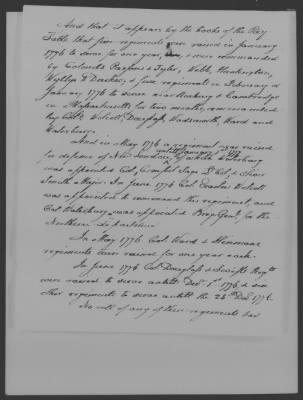 And that it appears by the books of the Pay
Table that five regiments were raised in January
1776 to serve for one year, & were commanded
by Colonels Parsons & Tyler, Webb, Huntington,
Wyllys & Durkee, & five regiments in February or
January 1776 to serve in Roxbury & Cambridge
in Massachusetts for two months, commanded
by Colo. Wolcott, Douglass, Wadsworth, Ward and
Waterbury.
And in May 1776 a regiment was raised
until January 1st 1777
for defence of New London, of which Waterbury
was appointed Col, Comfort Sage Lt Col, & Oliver
Smith a Major. In June 1776 Col. Erastus Wolcott
was appointed to command the regiment, and
Col. Waterbury was appointed Brig. Genl. for the
Northern Department.
In May 1776 Col. Ward &
regiments were raised for one year each.
In June 1776 Col. Douglass & Swifts Regts
were raised to serve until Decr 1st 1776, & six
other regiments to serve until the 25th Decr 1776.
No roll of any of these regiments has